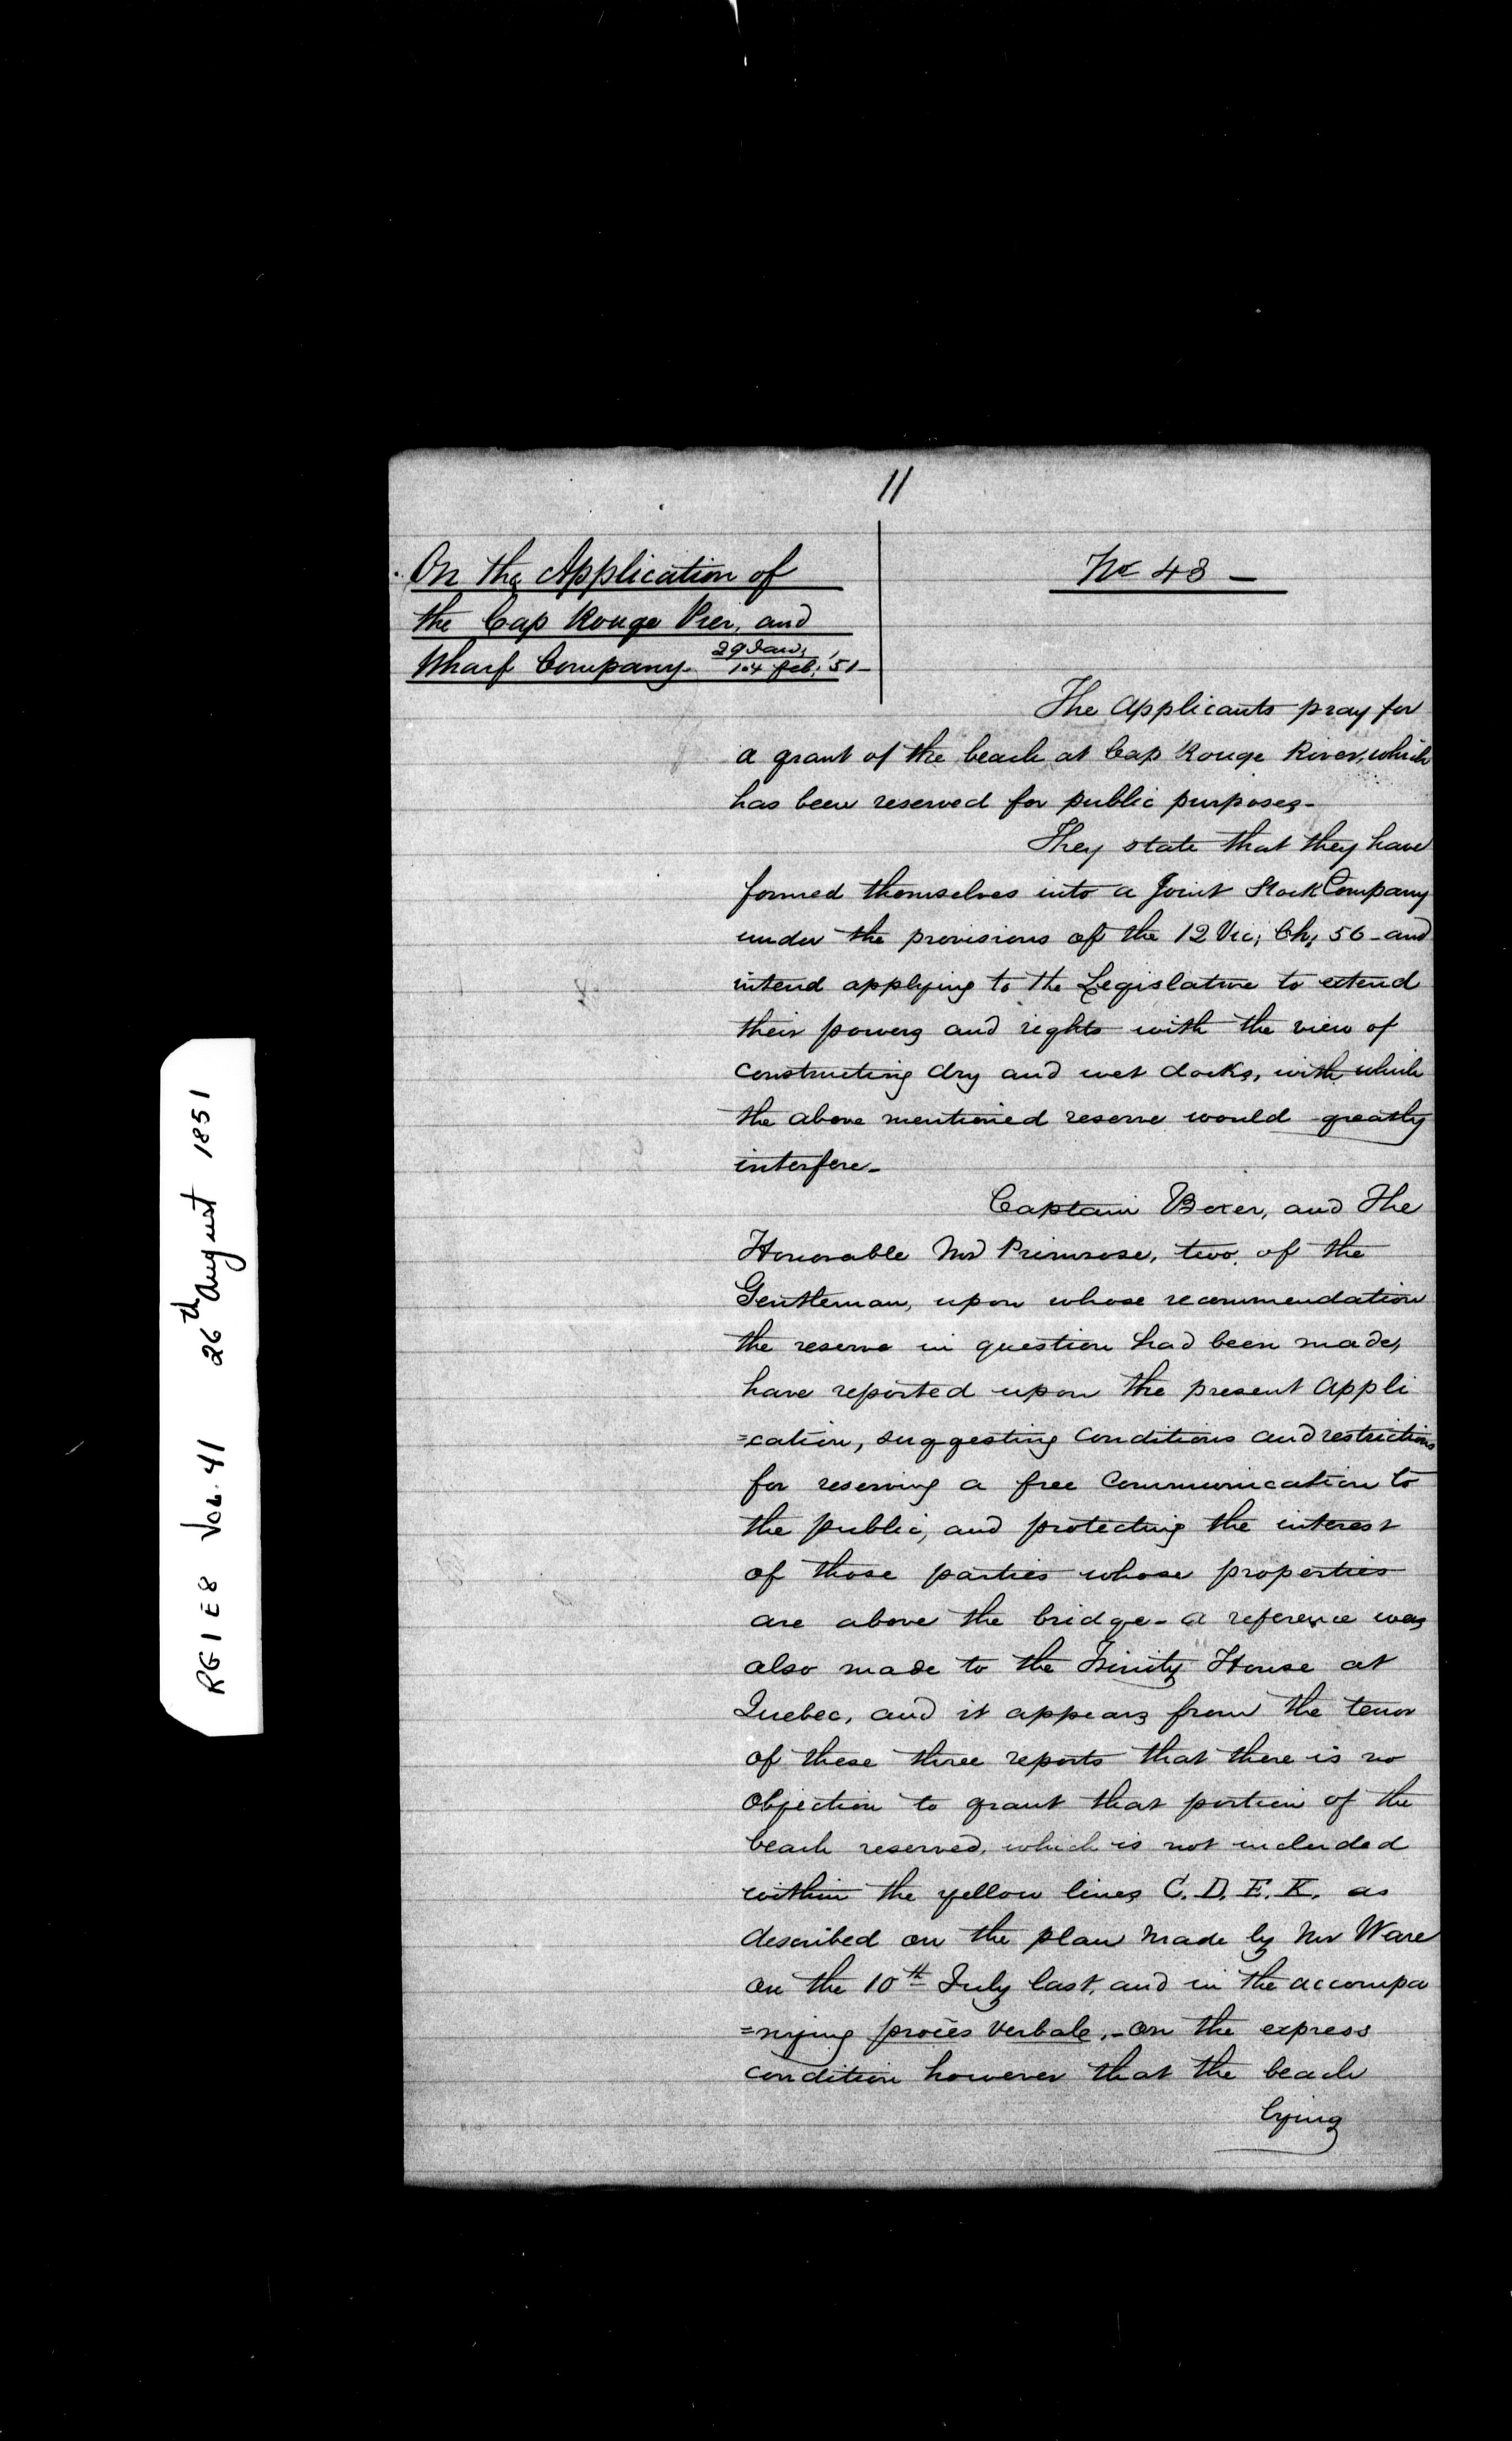 11
On the Application of
the Cap Rouge Pier, and
Wharf Company. 29 Jan; 14 feb; '51 -
No 48 -
The Applicants pray for
a grant of the beach at Cap Rouge River, which
has been reserved for public purposes -
They state that they have
formed themselves into a Joint Stock Company
under the provisions of the 12 Vic; Ch; 56 - and
intend applying to the Legislature to extend
their powers and rights with the view of
constructing dry and wet docks, with which
the above mentioned reserve would greatly
interfere -
Captain Boxer, and The
Honorable Mr Primrose, two of the
Gentleman, upon whose recommendation
the reserve in question had been made,
have reported upon the present appli
=cation, suggesting conditions and restrictions
for reserving a free communication to
the public, and protecting the interest
of those parties whose properties
are above the bridge - a reference was
also made to the Trinity House at
Quebec, and it appears from the tenor
of these three reports that there is no
objection to grant that portion of the
beach reserved, which is not included
within the yellow lines C. D. E. K. as
described on the plan made by Mr Ware
on the 10th July last, and in the accompa
=nying procès verbale, - on the express
condition however that the beach
lying
RG 1 E 8 Vol. 41 26th August 1851